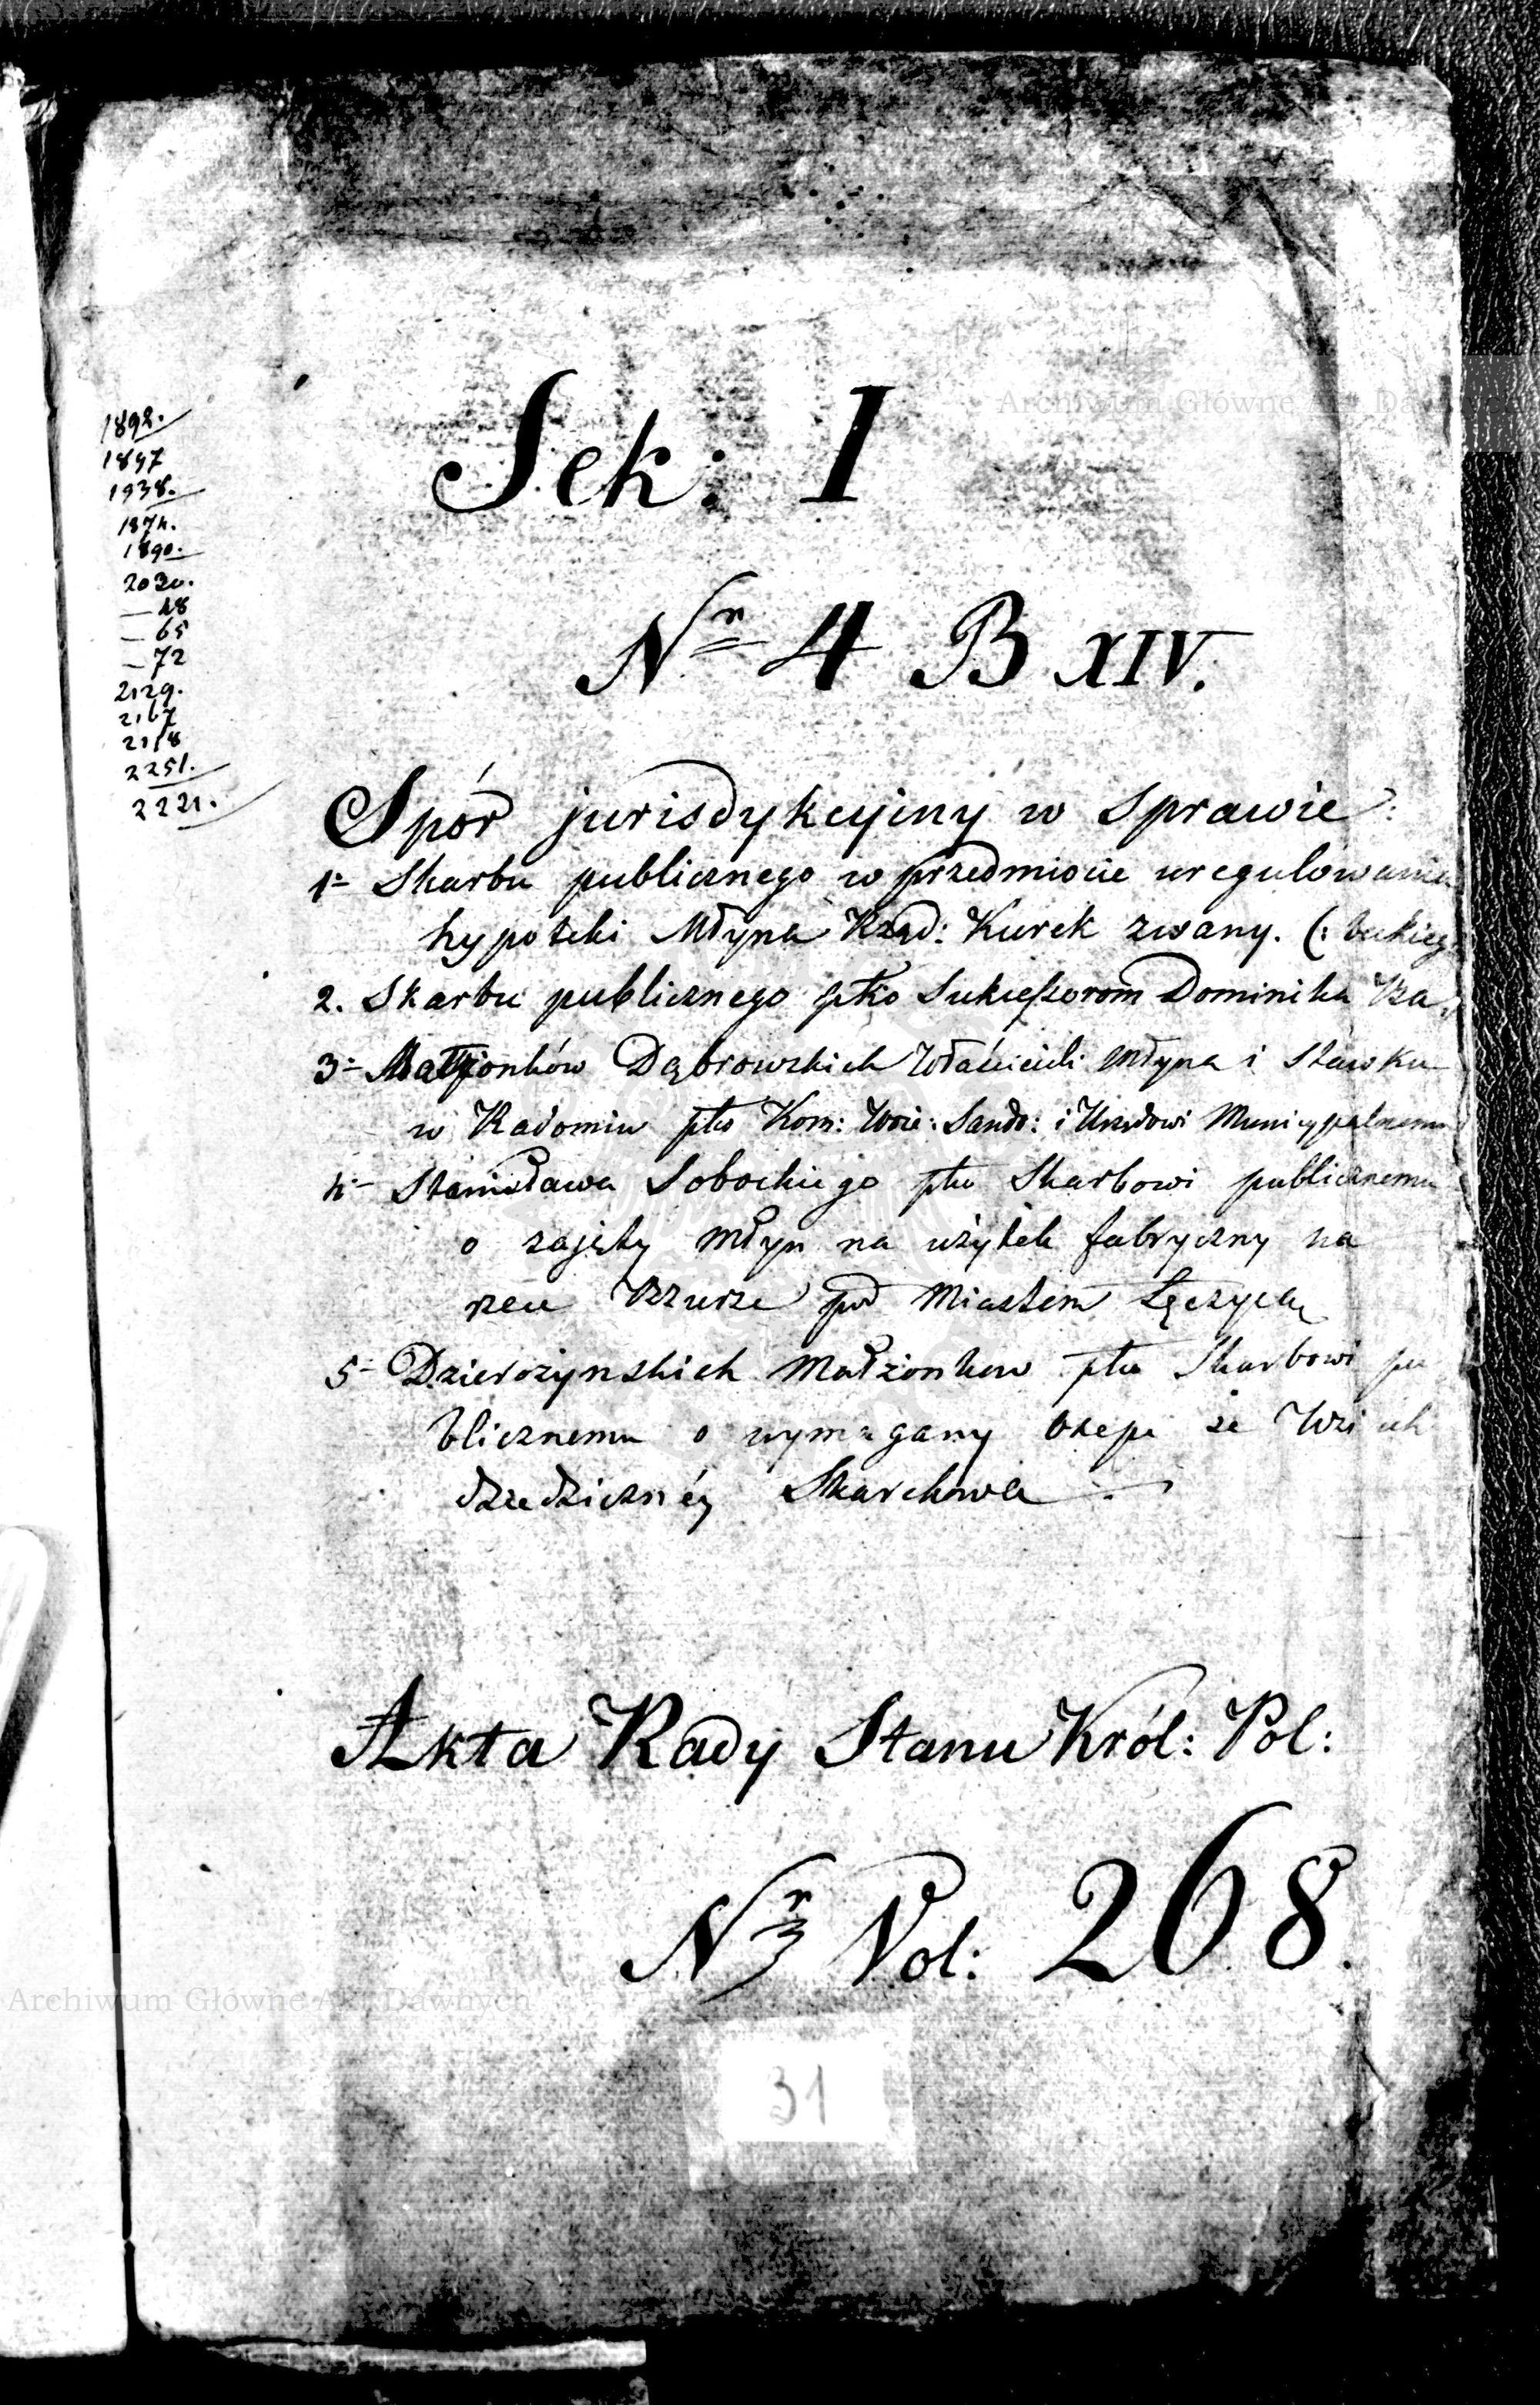 1892.
1897
1938.
1874.
1890.
2030.
— 48
— 65
— 72
2129.
2167
2118
2251.
2221.
Sek: I
Nr 4 B XIV.
Spór jurisdykcyiny w sprawie:
1- Skarbu publicznego w przedmiocie uregulowania
hypoteki Młyna Rząd: Kurek zwany. (:
2. Skarbu publicznego ptko Sukcessorom Dominika
3- Małżonków Dąbrowskich Właścicieli Młyna i Stawku
w Radomiu ptko Kom: Woie: Sando: i Urzędowi Municypalnemu
4- Stanisława Sobockiego ptko Skarbowi publicznemu
o zajęty Młyn na użytek fabryczny na
rzece Bzurze pod Miastem Łęczycą
5- Dzierożynskich Małżonkow ptko Skarbowi pu
blicznemu o wymagany Osep ze Wsi ich
dziedziczney Skarchowa
Akta Rady Stanu Król: Pol:
Nr Vol: 268.
31
Archiwum Główne Akt Dawnych
Archiwum Główne Akt Dawnych